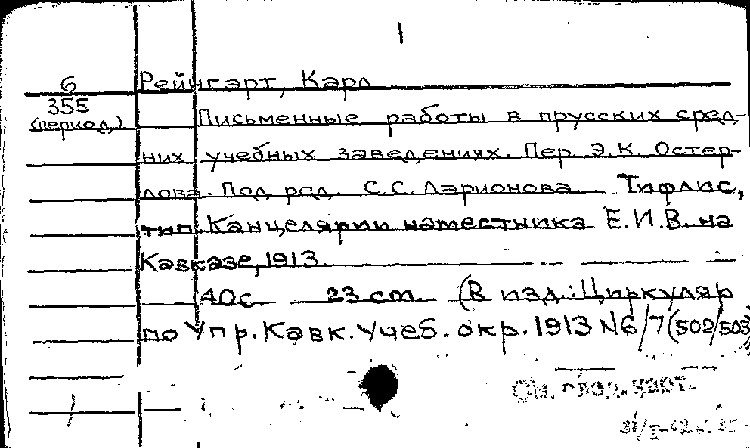 1
6 Рейнгарт, Карл
355 Письменные работы в прусских сред-
(период.)
них учебных заведениях. Пер. Э.К. Остер-
лова. Под ред. С.С. Ларионова. Тифлис,
тип. Канцелярии наместника Е.И.В. на
Кавказе, 1913.
40с 23 cm (В изд.: Циркуляр
по Упр. Кавк. Учеб. окр. 1913 N6/7 (502/503)
См.